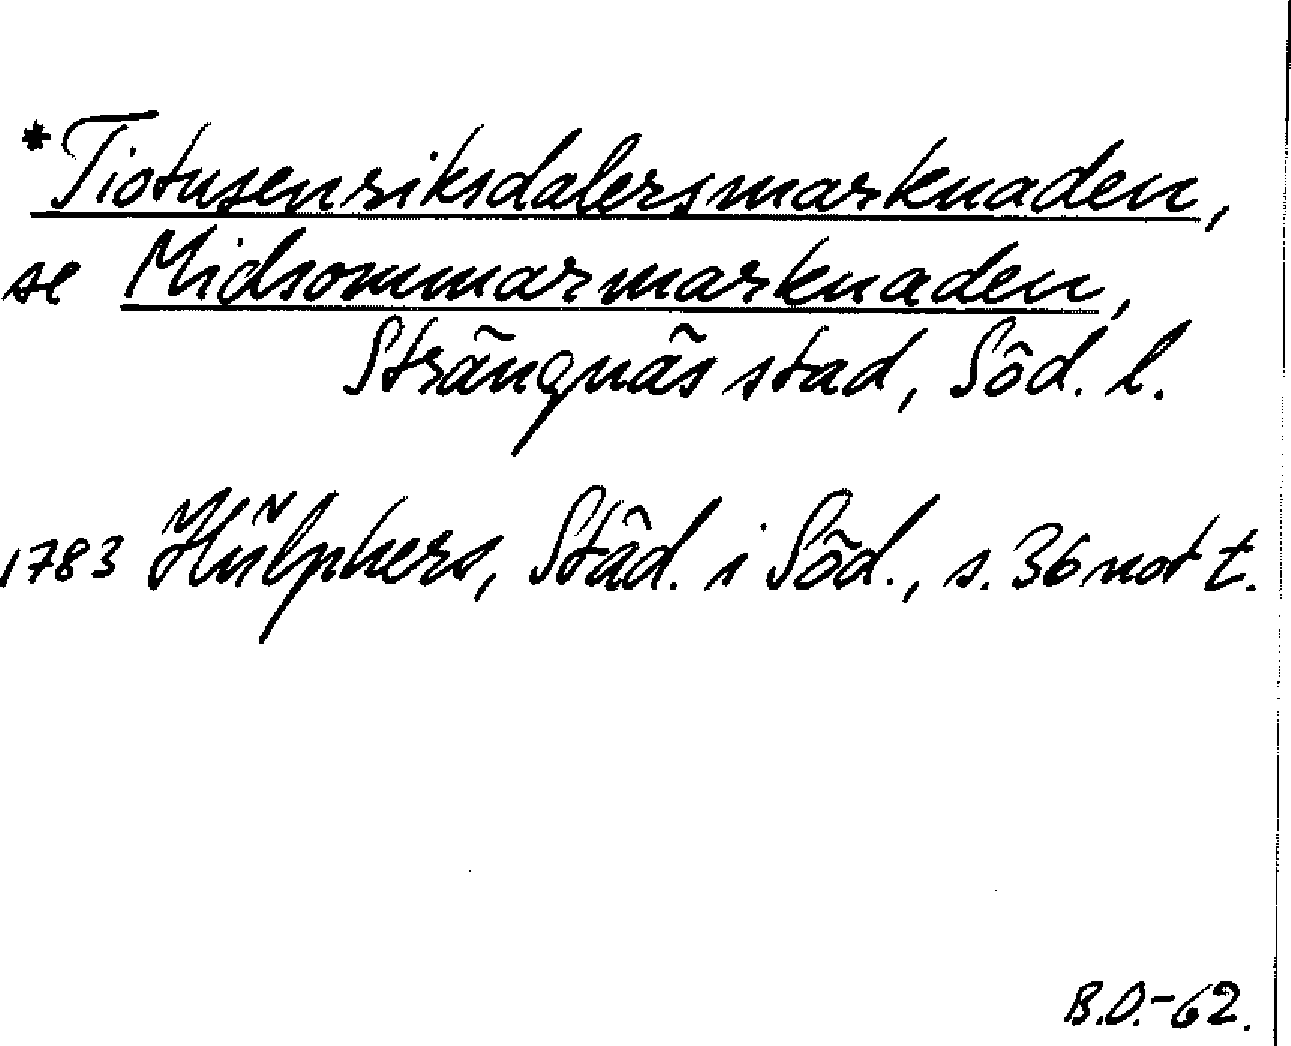 *Tiotusenriksdalersmarknaden,
se Midsommarmarknaden,
Strängnäs stad, Söd. l.
1783 Hülphers, Städ. i Söd., s. 36 not t.
B.O.-62.